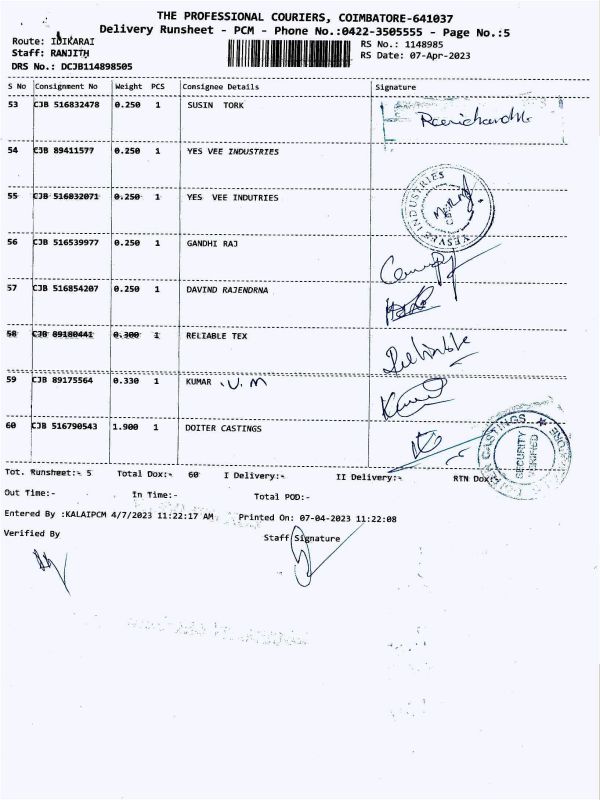 THE PROFESSIONAL COURIERS, COIMBATORE-641037
Delivery Runsheet - PCM - Phone No.:0422-3505555 - Page No.:5
Route: IDIKARAI
Staff: RANJITH
DRS No.: DCJB114898505
RS No.: 1148985
RS Date: 07-Apr-2023
S No Consignment No Weight PCS Consignee Details Signature
53 CJB 516832478 0.250 1 SUSIN TORK
54 CJB 89411577 0.250 1 YES VEE INDUSTRIES
55 CJB 516832071 0.250 1 YES VEE INDUTRIES
YESVEE INDUSTRIES
56 CJB 516539977 0.250 1 GANDHI RAJ
57 CJB 516854207 0.250 1 DAVIND RAJENDRNA
58 CJB 89180441 0.300 1 RELIABLE TEX
59 CJB 89175564 0.330 1 KUMAR .V.M
60 CJB 516790543 1.900 1 DOITER CASTINGS
CASTINGS
SECURITY
Tot. Runsheet:- 5 Total Dox:- 60 I Delivery:- II Delivery:- RTN Dox:-
Out Time:- In Time:- Total POD:-
Entered By :KALAIPCM 4/7/2023 11:22:17 AM Printed On: 07-04-2023 11:22:08
Verified By Staff Signature